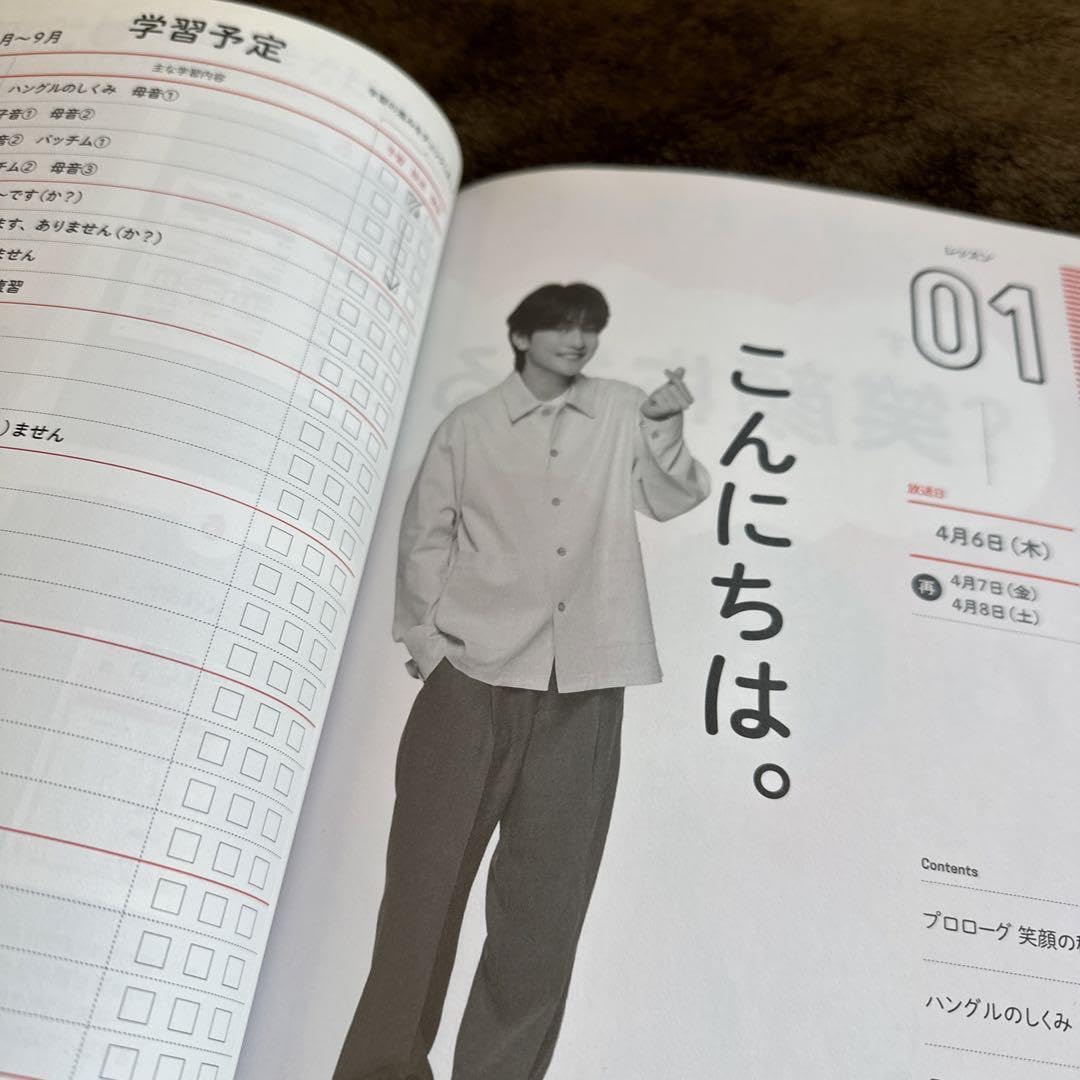 月〜9月
学習予定
主な学習内容
ハングルのしくみ 母音①
子音① 母音②
音② パッチム①
チム② 母音③
〜です(か?)
ます、ありません(か?)
ません
復習
)ません
レッスン
01
こんにちは。
放送日
4月6日(木)
再 4月7日(金)
4月8日(土)
Contents
プロローグ 笑顔の
ハングルのしくみ